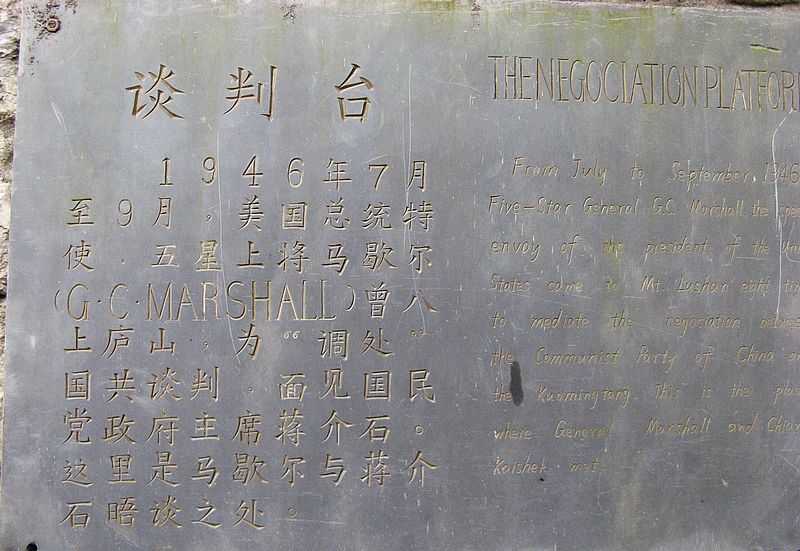 谈判台
1946年7月
至9月,美国总统特
使、五星上将马歇尔
(G·C·MARSHALL)曾八
上庐山,为“调处”
国共谈判,面见国民
党政府主席蒋介石。
这里是马歇尔与蒋介
石晤谈之处。
THE NEGOCIATION PLATFORM
From July to September, 1946
Five-Star General G.C. Marshall, the
envoy of the president of the
States came to Mt. Lushan eight
to mediate the negociation
the Communist Party of China
the Kuomingtang. This is the
where General Marshall and
Kaishek met.